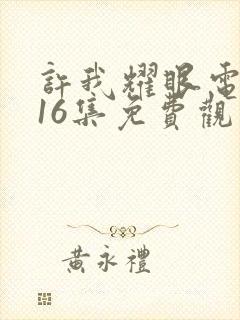 許我耀眼電
16集免費觀
黃永禮